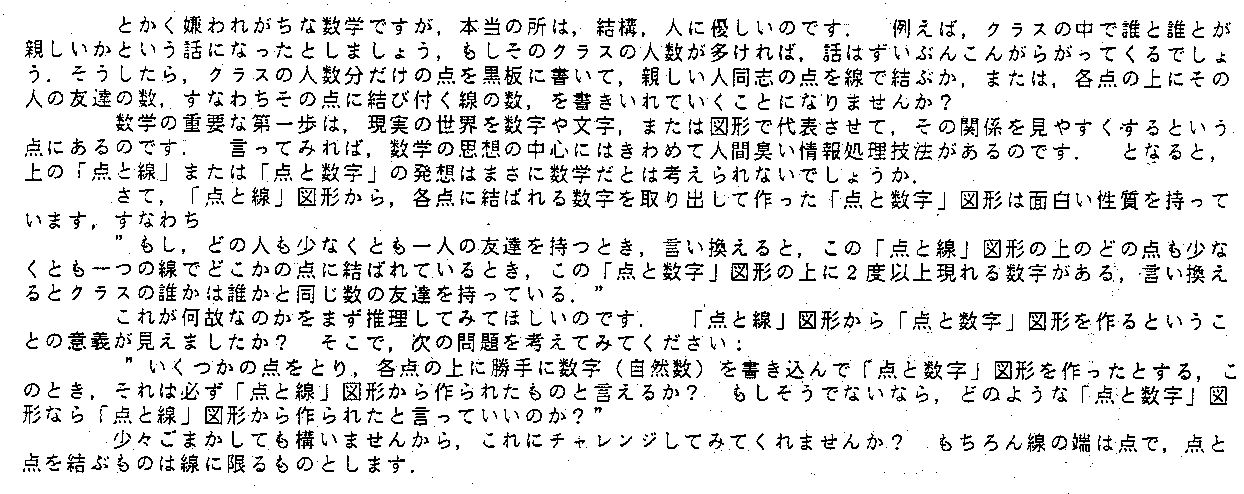 とかく嫌われがちな数学ですが，本当の所は，結構，人に優しいのです． 例えば，クラスの中で誰と誰とが
親しいかという話になったとしましょう，もしそのクラスの人数が多ければ，話はずいぶんこんがらがってくるでしょ
う．そうしたら，クラスの人数分だけの点を黒板に書いて，親しい人同志の点を線で結ぶか，または，各点の上にその
人の友達の数，すなわちその点に結び付く線の数，を書きいれていくことになりませんか？
数学の重要な第一歩は，現実の世界を数字や文字，または図形で代表させて，その関係を見やすくするという
点にあるのです． 言ってみれば，数学の思想の中心にはきわめて人間臭い情報処理技法があるのです． となると，
上の「点と線」または「点と数字」の発想はまさに数学だとは考えられないでしょうか．
さて，「点と線」図形から，各点に結ばれる数字を取り出して作った「点と数字」図形は面白い性質を持って
います，すなわち
”もし，どの人も少なくとも一人の友達を持つとき，言い換えると，この「点と線」図形の上のどの点も少な
くとも一つの線でどこかの点に結ばれているとき，この「点と数字」図形の上に２度以上現れる数字がある，言い換え
るとクラスの誰かは誰かと同じ数の友達を持っている．”
これが何故なのかをまず推理してみてほしいのです． 「点と線」図形から「点と数字」図形を作るというこ
との意義が見えましたか？ そこで，次の問題を考えてみてください：
”いくつかの点をとり，各点の上に勝手に数字（自然数）を書き込んで「点と数字」図形を作ったとする，こ
のとき，それは必ず「点と線」図形から作られたものと言えるか？ もしそうでないなら，どのような「点と数字」図
形なら「点と線」図形から作られたと言っていいのか？”
少々ごまかしても構いませんから，これにチャレンジしてみてくれませんか？ もちろん線の端は点で，点と
点を結ぶものは線に限るものとします．